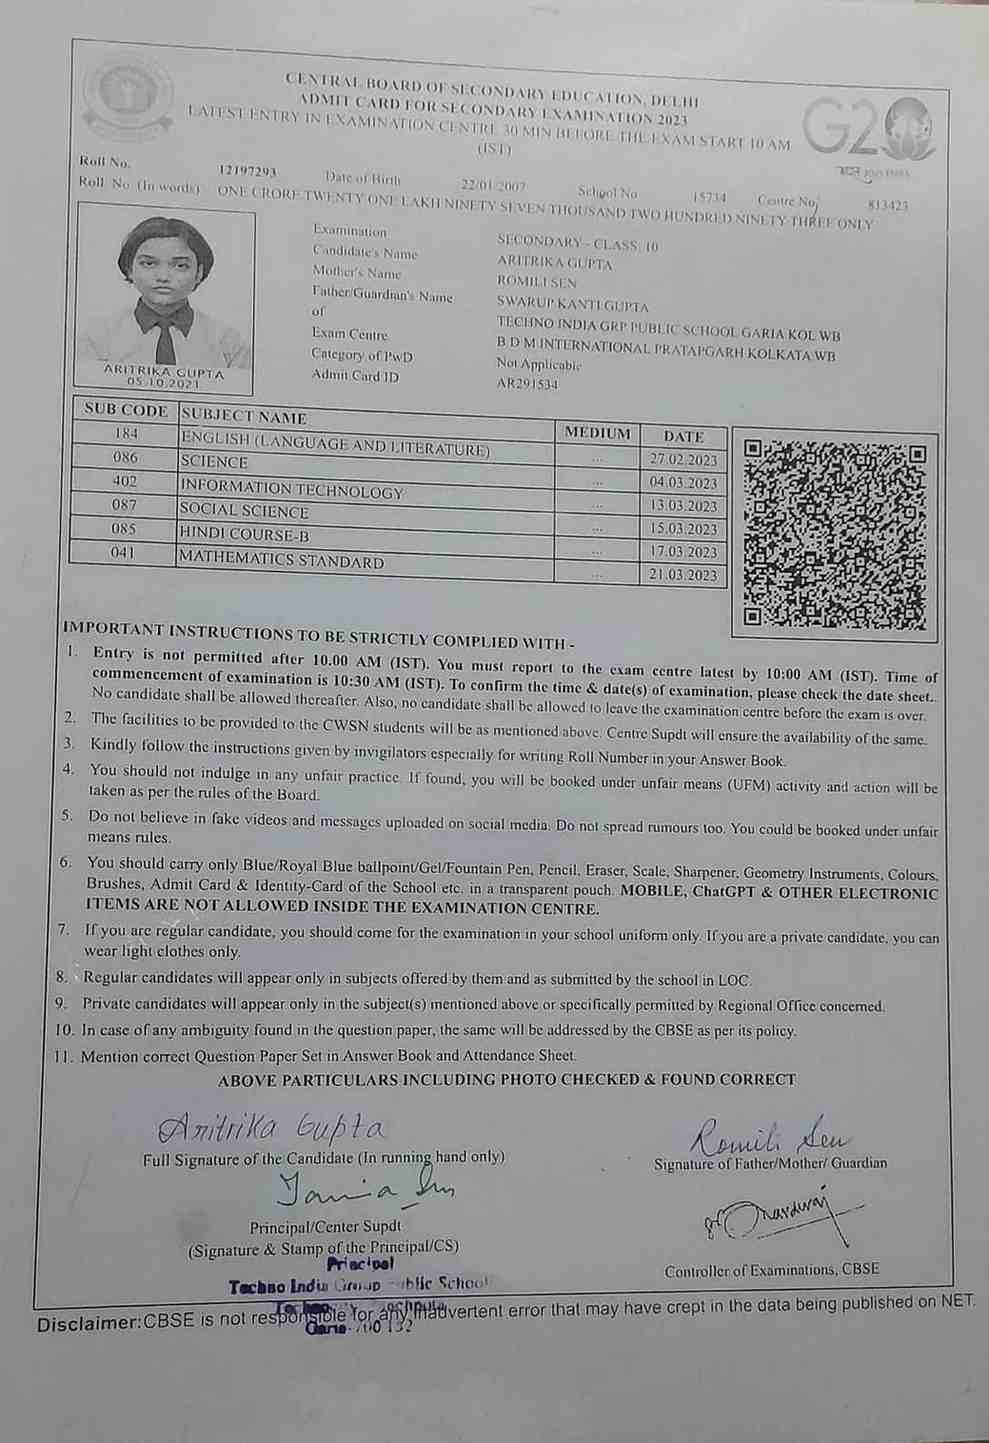 CENTRAL BOARD OF SECONDARY EDUCATION, DELHI
ADMIT CARD FOR SECONDARY EXAMINATION 2023
LATEST ENTRY IN EXAMINATION CENTRE 30 MIN BEFORE THE EXAM START 10 AM
(IST)
G20
Roll No. 12197293 Date of Birth 22/01/2007 School No 15734 Centre No 813423
Roll No (In words) ONE CRORE TWENTY ONE LAKH NINETY SEVEN THOUSAND TWO HUNDRED NINETY THREE ONLY
Examination SECONDARY - CLASS 10
Candidate's Name ARITRIKA GUPTA
Mother's Name ROMILI SEN
Father/Guardian's Name SWARUP KANTI GUPTA
of TECHNO INDIA GRP PUBLIC SCHOOL GARIA KOL WB
Exam Centre B D M INTERNATIONAL PRATAPGARH KOLKATA WB
Category of PwD Not Applicable
Admit Card ID AR291534
ARITRIKA GUPTA
05.10.2021
SUB CODE SUBJECT NAME MEDIUM DATE
184 ENGLISH (LANGUAGE AND LITERATURE) ... 27.02.2023
086 SCIENCE ... 04.03.2023
402 INFORMATION TECHNOLOGY ... 13.03.2023
087 SOCIAL SCIENCE ... 15.03.2023
085 HINDI COURSE-B ... 17.03.2023
041 MATHEMATICS STANDARD ... 21.03.2023
IMPORTANT INSTRUCTIONS TO BE STRICTLY COMPLIED WITH -
1. Entry is not permitted after 10.00 AM (IST). You must report to the exam centre latest by 10:00 AM (IST). Time of
commencement of examination is 10:30 AM (IST). To confirm the time & date(s) of examination, please check the date sheet..
No candidate shall be allowed thereafter. Also, no candidate shall be allowed to leave the examination centre before the exam is over.
2. The facilities to be provided to the CWSN students will be as mentioned above. Centre Supdt will ensure the availability of the same.
3. Kindly follow the instructions given by invigilators especially for writing Roll Number in your Answer Book.
4. You should not indulge in any unfair practice. If found, you will be booked under unfair means (UFM) activity and action will be
taken as per the rules of the Board.
5. Do not believe in fake videos and messages uploaded on social media. Do not spread rumours too. You could be booked under unfair
means rules.
6. You should carry only Blue/Royal Blue ballpoint/Gel/Fountain Pen, Pencil, Eraser, Scale, Sharpener, Geometry Instruments, Colours,
Brushes, Admit Card & Identity-Card of the School etc. in a transparent pouch. MOBILE, ChatGPT & OTHER ELECTRONIC
ITEMS ARE NOT ALLOWED INSIDE THE EXAMINATION CENTRE.
7. If you are regular candidate, you should come for the examination in your school uniform only. If you are a private candidate, you can
wear light clothes only.
8. Regular candidates will appear only in subjects offered by them and as submitted by the school in LOC.
9. Private candidates will appear only in the subject(s) mentioned above or specifically permitted by Regional Office concerned.
10. In case of any ambiguity found in the question paper, the same will be addressed by the CBSE as per its policy.
11. Mention correct Question Paper Set in Answer Book and Attendance Sheet.
ABOVE PARTICULARS INCLUDING PHOTO CHECKED & FOUND CORRECT
Aritrika Gupta
Romili Sen
Full Signature of the Candidate (In running hand only)
Signature of Father/Mother/ Guardian
Principal/Center Supdt
(Signature & Stamp of the Principal/CS)
Controller of Examinations, CBSE
Principal
Techno India Group Public School
Disclaimer:CBSE is not responsible for any inadvertent error that may have crept in the data being published on NET.